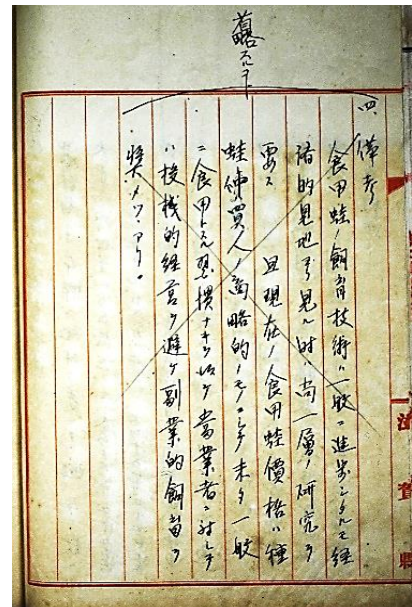 四、備考
食用蛙ノ飼育技術ハ一般ニ進歩シタルモ経
済的見地ヨリ見ル時ハ尚一層ノ研究ヲ
要ス 且現在ノ食用蛙價格ハ種
蛙売買人ノ商略的ノモノニシテ未タ一般
ニ食用トスル習慣ナキヲ以テ當業者ニ対シテ
ハ投機的経営ヲ避ケ副業的飼畜ヲ
奨メツヽアリ。
滋賀縣